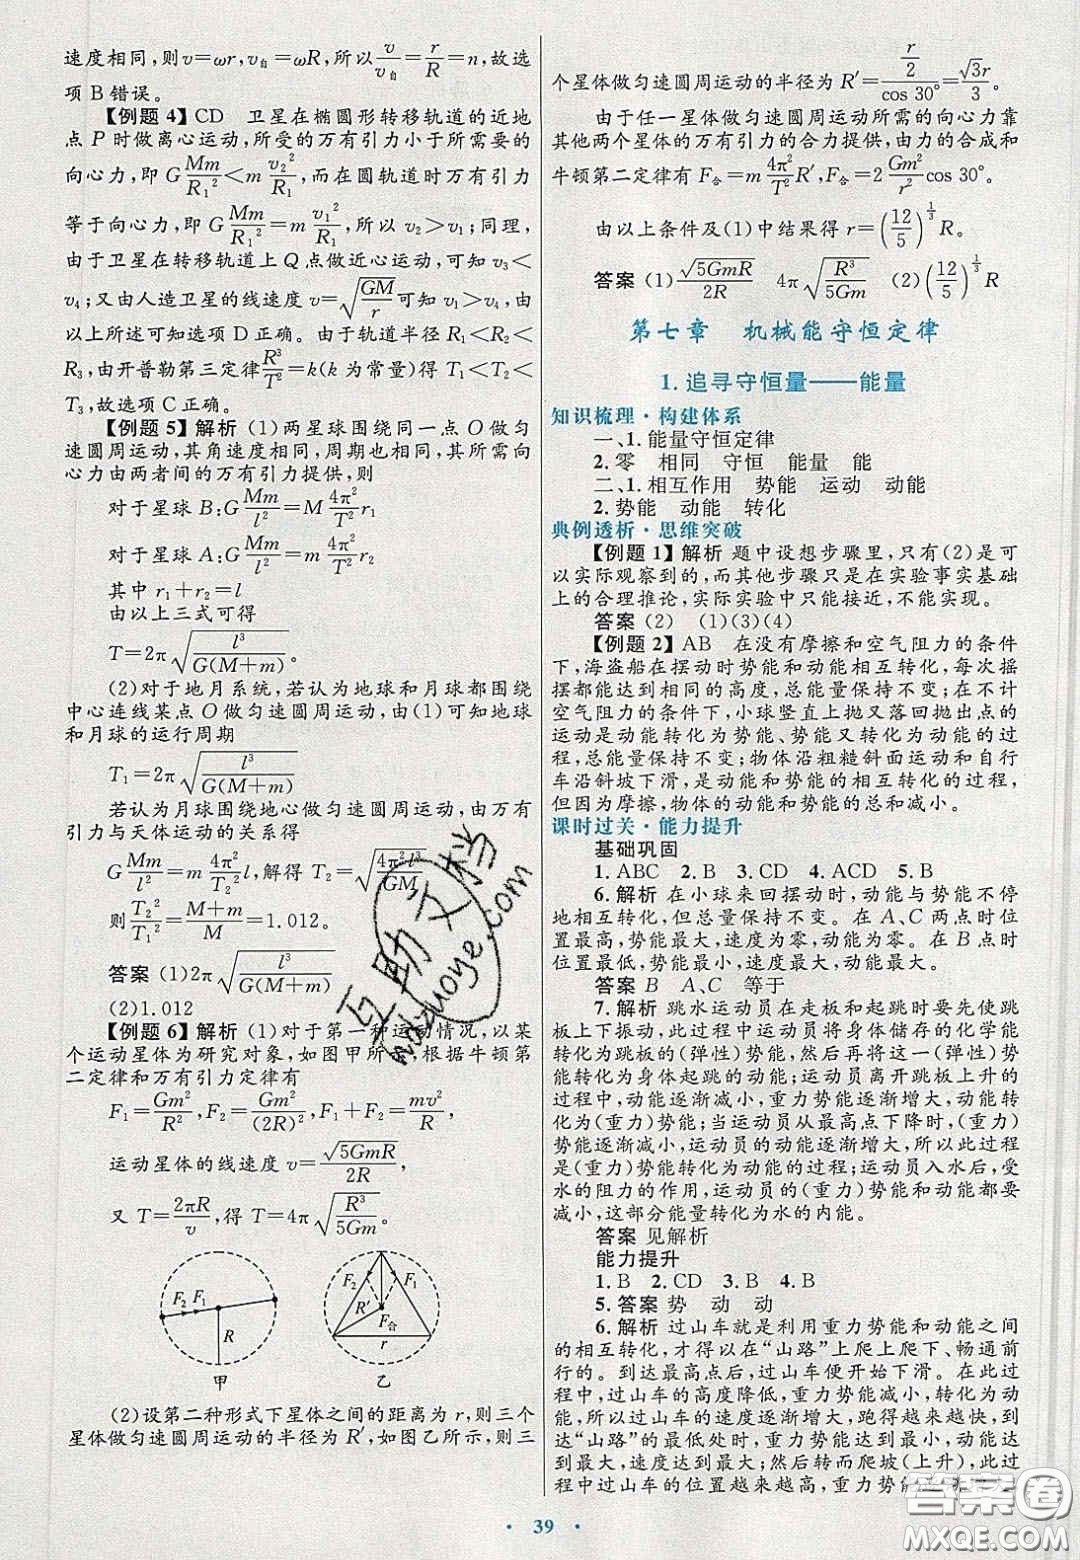 速度相同,则v=ωr,v自=ωR,所以v/v自=r/R=n,故选
项B错误。
【例题4】CD 卫星在椭圆形转移轨道的近地
点P时做离心运动,所受的万有引力小于所需要的
向心力,即G Mm/R₁²<m v₂²/R₁,而在圆轨道时万有引力
等于向心力,即G Mm/R₁²=m v₁²/R₁,所以v₂>v₁;同理,
由于卫星在转移轨道上Q点做近心运动,可知v₃<
v₄;又由人造卫星的线速度v=√(GM/r)可知v₁>v₄,由
以上所述可知选项D正确。由于轨道半径R₁<R₂<
R₃,由开普勒第三定律R³/T²=k(k为常量)得T₁<T₂<
T₃,故选项C正确。
【例题5】解析 (1)两星球围绕同一点O做匀
速圆周运动,其角速度相同,周期也相同,其所需向
心力由两者间的万有引力提供,则
对于星球B:G Mm/l²=M 4π²/T² r₁
对于星球A:G Mm/l²=m 4π²/T² r₂
其中r₁+r₂=l
由以上三式可得
T=2π√(l³/G(M+m))。
(2)对于地月系统,若认为地球和月球都围绕
中心连线某点O做匀速圆周运动,由(1)可知地球
和月球的运行周期
T₁=2π√(l³/G(M+m))
若认为月球围绕地心做匀速圆周运动,由万有
引力与天体运动的关系得
G Mm/l²=m 4π²/T₂² l,解得T₂=√(4π²l³/GM)
则T₂²/T₁²=(M+m)/M=1.012。
答案 (1)2π√(l³/G(M+m))
(2)1.012
【例题6】解析 (1)对于第一种运动情况,以某
个运动星体为研究对象,如图甲所 根据牛顿第
二定律和万有引力定律有
F₁=Gm²/R²,F₂=Gm²/(2R)²,F₁+F₂=mv²/R,
运动星体的线速度v=√(5GmR)/2R,
又T=2πR/v,得T=4π√(R³/5Gm)。
F₂ F₁ R 甲
F₂ F₁ R′ F合 r 乙
(2)设第二种形式下星体之间的距离为r,则三个
星体做匀速圆周运动的半径为R′,如图乙所示,则三
个星体做匀速圆周运动的半径为R′=(r/2)/cos 30°=√3r/3。
由于任一星体做匀速圆周运动所需的向心力靠
其他两个星体的万有引力的合力提供,由力的合成和
牛顿第二定律有F合=m 4π²/T² R′,F合=2 Gm²/r² cos 30°。
由以上条件及(1)中结果得r=(12/5)^(1/3) R。
答案 (1)√(5GmR)/2R 4π√(R³/5Gm) (2)(12/5)^(1/3) R
第七章 机械能守恒定律
1.追寻守恒量——能量
知识梳理·构建体系
一、1.能量守恒定律
2.零 相同 守恒 能量 能
二、1.相互作用 势能 运动 动能
2.势能 动能 转化
典例透析·思维突破
【例题1】解析 题中设想步骤里,只有(2)是可
以实际观察到的,而其他步骤只是在实验事实基础
上的合理推论,实际实验中只能接近,不能实现。
答案 (2) (1)(3)(4)
【例题2】AB 在没有摩擦和空气阻力的条件
下,海盗船在摆动时势能和动能相互转化,每次摇
摆都能达到相同的高度,总能量保持不变;在不计
空气阻力的条件下,小球竖直上抛又落回抛出点的
运动是动能转化为势能、势能又转化为动能的过
程,总能量保持不变;物体沿粗糙斜面运动和自行
车沿斜坡下滑,是动能和势能的相互转化的过程,
但因为摩擦,物体的动能和势能的总和减小。
课时过关·能力提升
基础巩固
1.ABC 2.B 3.CD 4.ACD 5.B
6.解析 在小球来回摆动时,动能与势能不停
地相互转化,但总能量保持不变。在A、C两点时位
置最高,势能最大,速度为零,动能为零。在B点时
位置最低,势能最小,速度最大,动能最大。
答案 B A、C 等于
7.解析 跳水运动员在走板和起跳时要先使跳
板上下振动,此过程中运动员将身体储存的化学能
转化为跳板的(弹性)势能,然后再将这一(弹性)势
能转化为身体起跳的动能;运动员离开跳板上升的
过程中,动能逐渐减小,重力势能逐渐增大,动能转化
为重力势能;当运动员从最高点下降时,(重力)
势能逐渐减小,运动员的动能逐渐增大,所以此过程
是(重力)势能转化为动能的过程;运动员入水后,受
水的阻力的作用,运动员的(重力)势能和动能都要
减小,这部分能量转化为水的内能。
答案 见解析
能力提升
1.B 2.CD 3.B 4.B
5.答案 势 动 动
6.解析 过山车就是利用重力势能和动能之间
的相互转化,才得以在“山路”上爬上爬下、畅通前
行的。到达最高点后,过山车便开始下滑。在此过
程中,过山车的高度降低,重力势能减小,转化为动
能,所以动能会变得越来越大,跑得越来越快,当到
达“山路”的最低处时,重力势能达到最小,动能达到
到最大,速度达到最大;然后转而爬坡(上升),在此
过程中过山车的位置越来越高,重力势能
39
互助文档
hdzuoye.com
答案卷
MXQE.COM